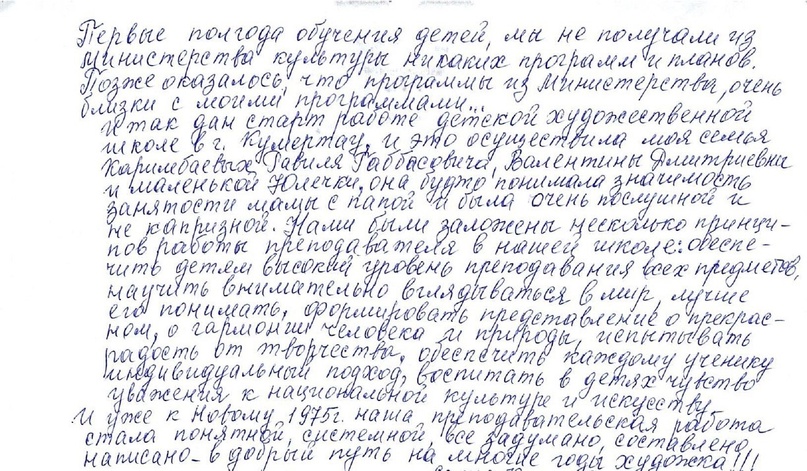 Первые полгода обучения детей, мы не получали из
министерства культуры никаких программ и планов.
Позже оказалось, что программы из Министерства, очень
близки с моими программами...
и так дан старт работе детской художественной
школе в г. Кумертау, и это осуществила моя семья
Каримбаевых Равиля Габбасовича, Валентины Дмитриевны
и маленькой Юлечки, она будто понимала значимость
занятости мамы с папой и была очень послушной и
не капризной. Нами были заложены несколько принци-
пов работы преподавателя в нашей школе: обеспе-
чить детям высокий уровень преподавания всех предметов,
научить внимательно вглядываться в мир, лучше
его понимать, формировать представление о прекрас-
ном, о гармонии человека и природы, испытывать
радость от творчества, обеспечить каждому ученику
индивидуальный подход, воспитать в детях чувство
уважения к национальной культуре и искусству
И уже к Новому 1975г. наша преподавательская работа
стала понятной, системной, все задумано, составлено,
написано - в добрый путь на многие годы художка!!!